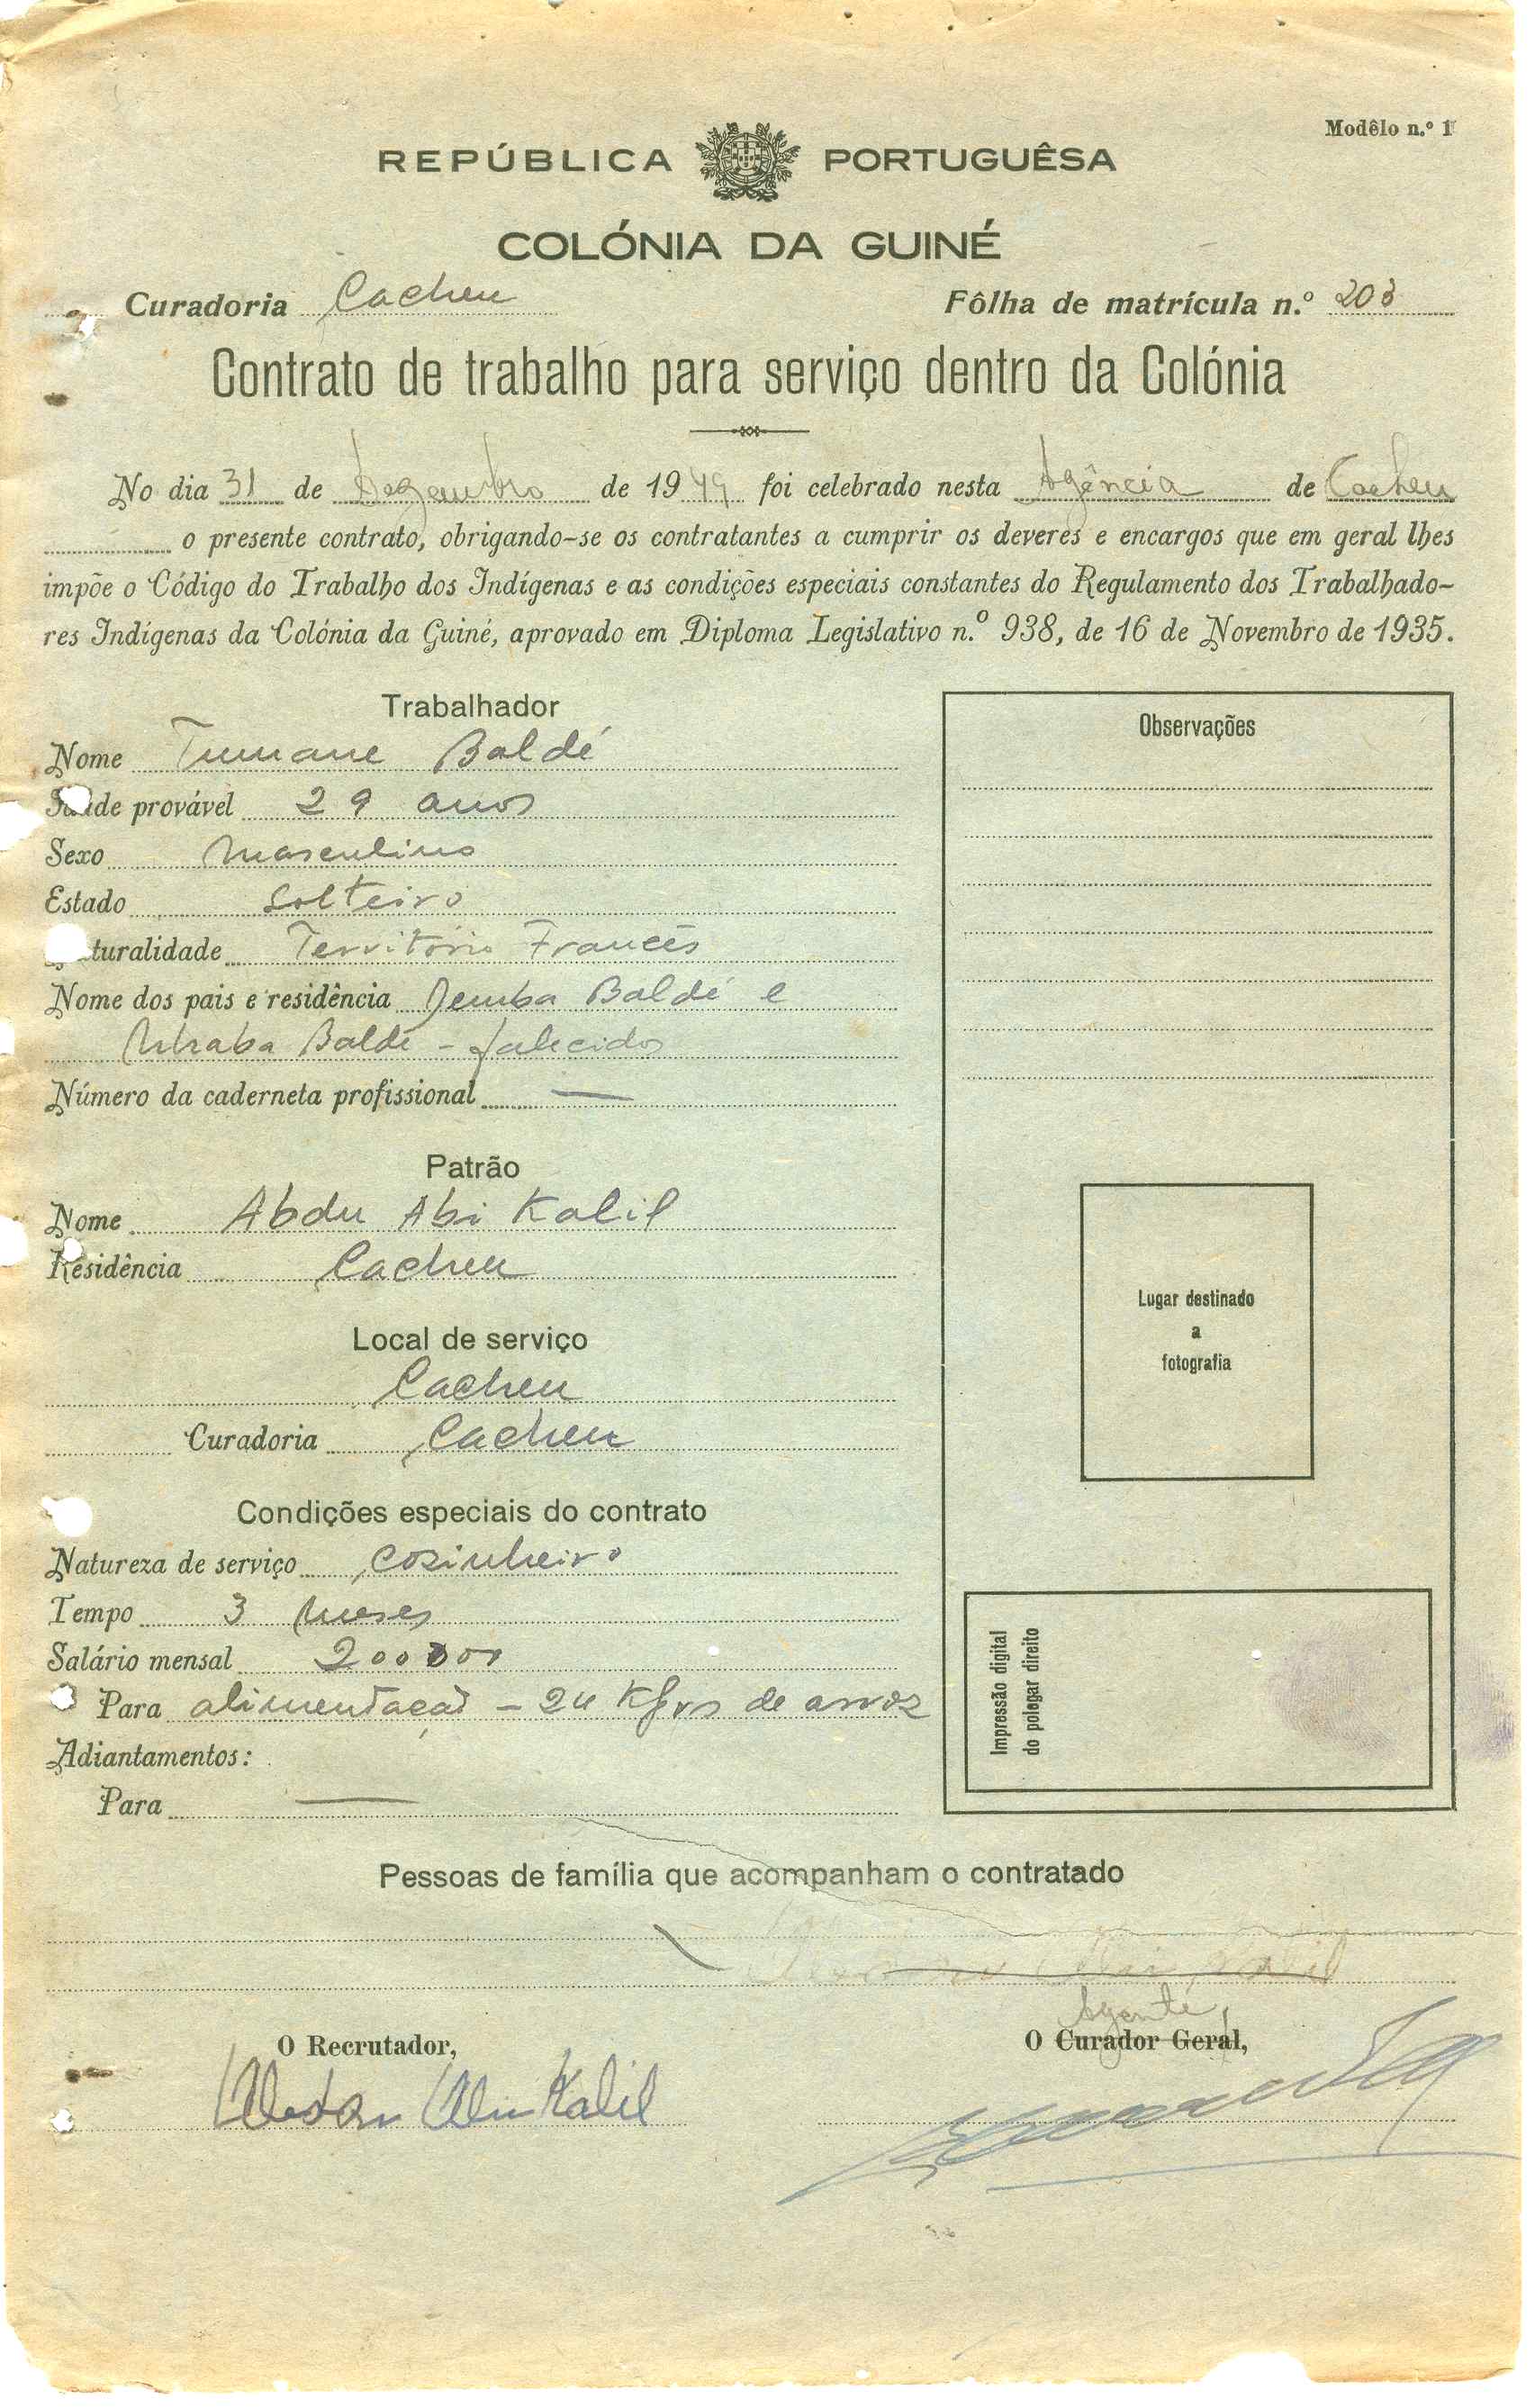 Modêlo n.º 1
REPÚBLICA PORTUGUÊSA
COLÓNIA DA GUINÉ
Curadoria Cacheu Fôlha de matrícula n.º 203
Contrato de trabalho para serviço dentro da Colónia
No dia 31 de Dezembro de 1949 foi celebrado nesta Agência de Cacheu
o presente contrato, obrigando-se os contratantes a cumprir os deveres e encargos que em geral lhes
impõe o Código do Trabalho dos Indígenas e as condições especiais constantes do Regulamento dos Trabalhado-
res Indígenas da Colónia da Guiné, aprovado em Diploma Legislativo n.º 938, de 16 de Novembro de 1935.
Trabalhador
Nome Tumane Baldé
Idade provável 29 anos
Sexo masculino
Estado solteiro
Naturalidade Território Francês
Nome dos pais e residência Demba Baldé e
Baldé - falecidos
Número da caderneta profissional —
Patrão
Nome Abdu Abi Kalil
Residência Cacheu
Local de serviço
Cacheu
Curadoria Cacheu
Condições especiais do contrato
Natureza de serviço cozinheiro
Tempo 3 meses
Salário mensal 200$00
Para alimentação - 24 Kgrs de arroz
Adiantamentos:
Para —
Observações
Lugar destinado
a
fotografia
Impressão digital
do polegar direito
Pessoas de família que acompanham o contratado
Kalil
Agente,
O Recrutador, O Curador Geral,
Kalil